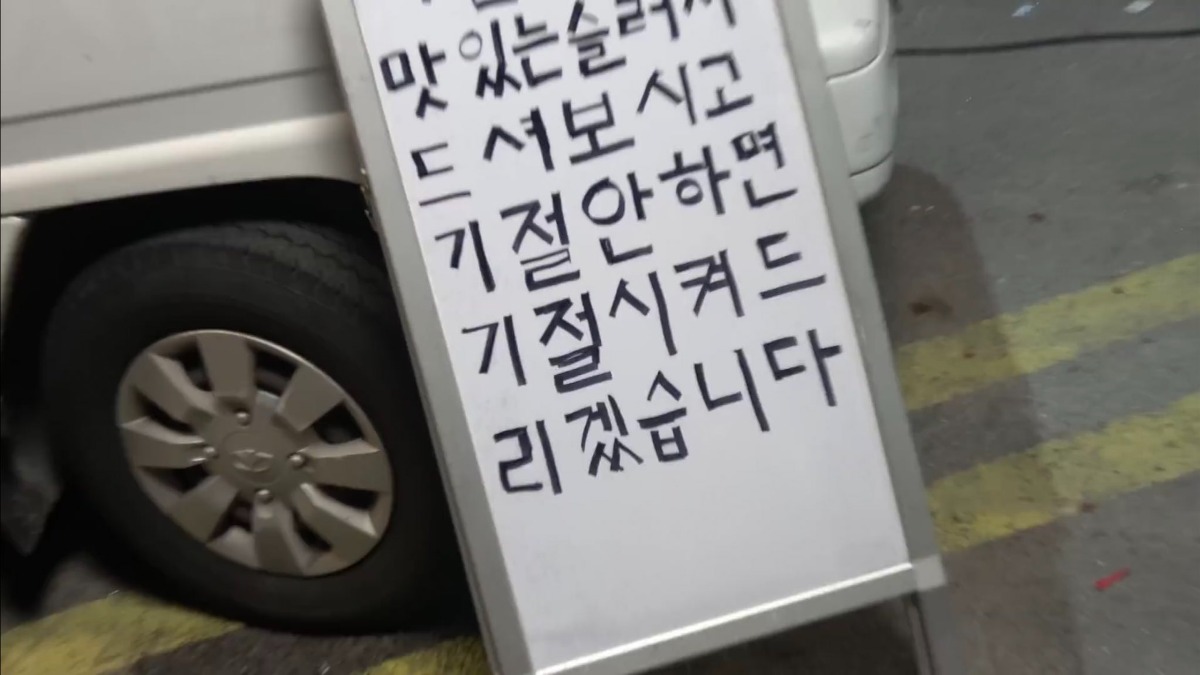 맛있는슬러시
드셔보시고
기절안하면
기절시켜드
리겠습니다